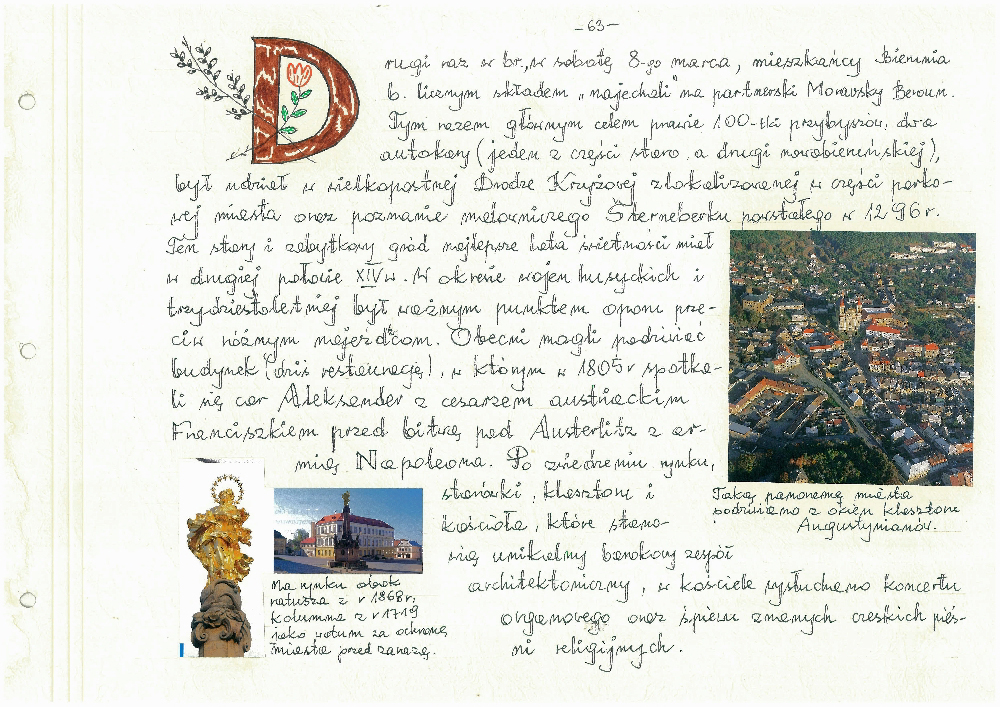 -63-
Drugi raz w br., w sobotę 8-go marca, mieszkańcy Bierunia
b. licznym składem „najechali" na partnerski Moravsky Beroun.
Tym razem głównym celem prawie 100-tki przybyszów, dwa
autokary (jeden z części staro, a drugi nowobieruńskiej),
był udział w wielkopostnej Drodze Krzyżowej zlokalizowanej w części parko-
wej miasta oraz poznanie malowniczego Šternberku powstałego w 1296r.
Ten stary i zabytkowy gród najlepsze lata świetności miał
w drugiej połowie XIVw. W okresie wojen husyckich i
trzydziestoletniej był ważnym punktem oporu prze-
ciw różnym najeźdźcom. Obecni mogli podziwiać
budynek (dziś restaurację), w którym w 1805r spotka-
li się car Aleksander z cesarzem austriackim
Franciszkiem przed bitwą pod Austerlitz z ar-
mią Napoleona. Po zwiedzeniu rynku,
starówki, klasztoru i
kościoła, które stano-
wią unikalny barokowy zespół
architektoniczny, w kościele wysłuchano koncertu
organowego oraz śpiewu znanych czeskich pieś-
ni religijnych.
Taką panoramę miasta
podziwiano z okien klasztoru
Augustynianów.
Na rynku obok
ratusza z r 1868r.
kolumna z r 1719
jako wotum za ochronę
miasta przed zarazą.